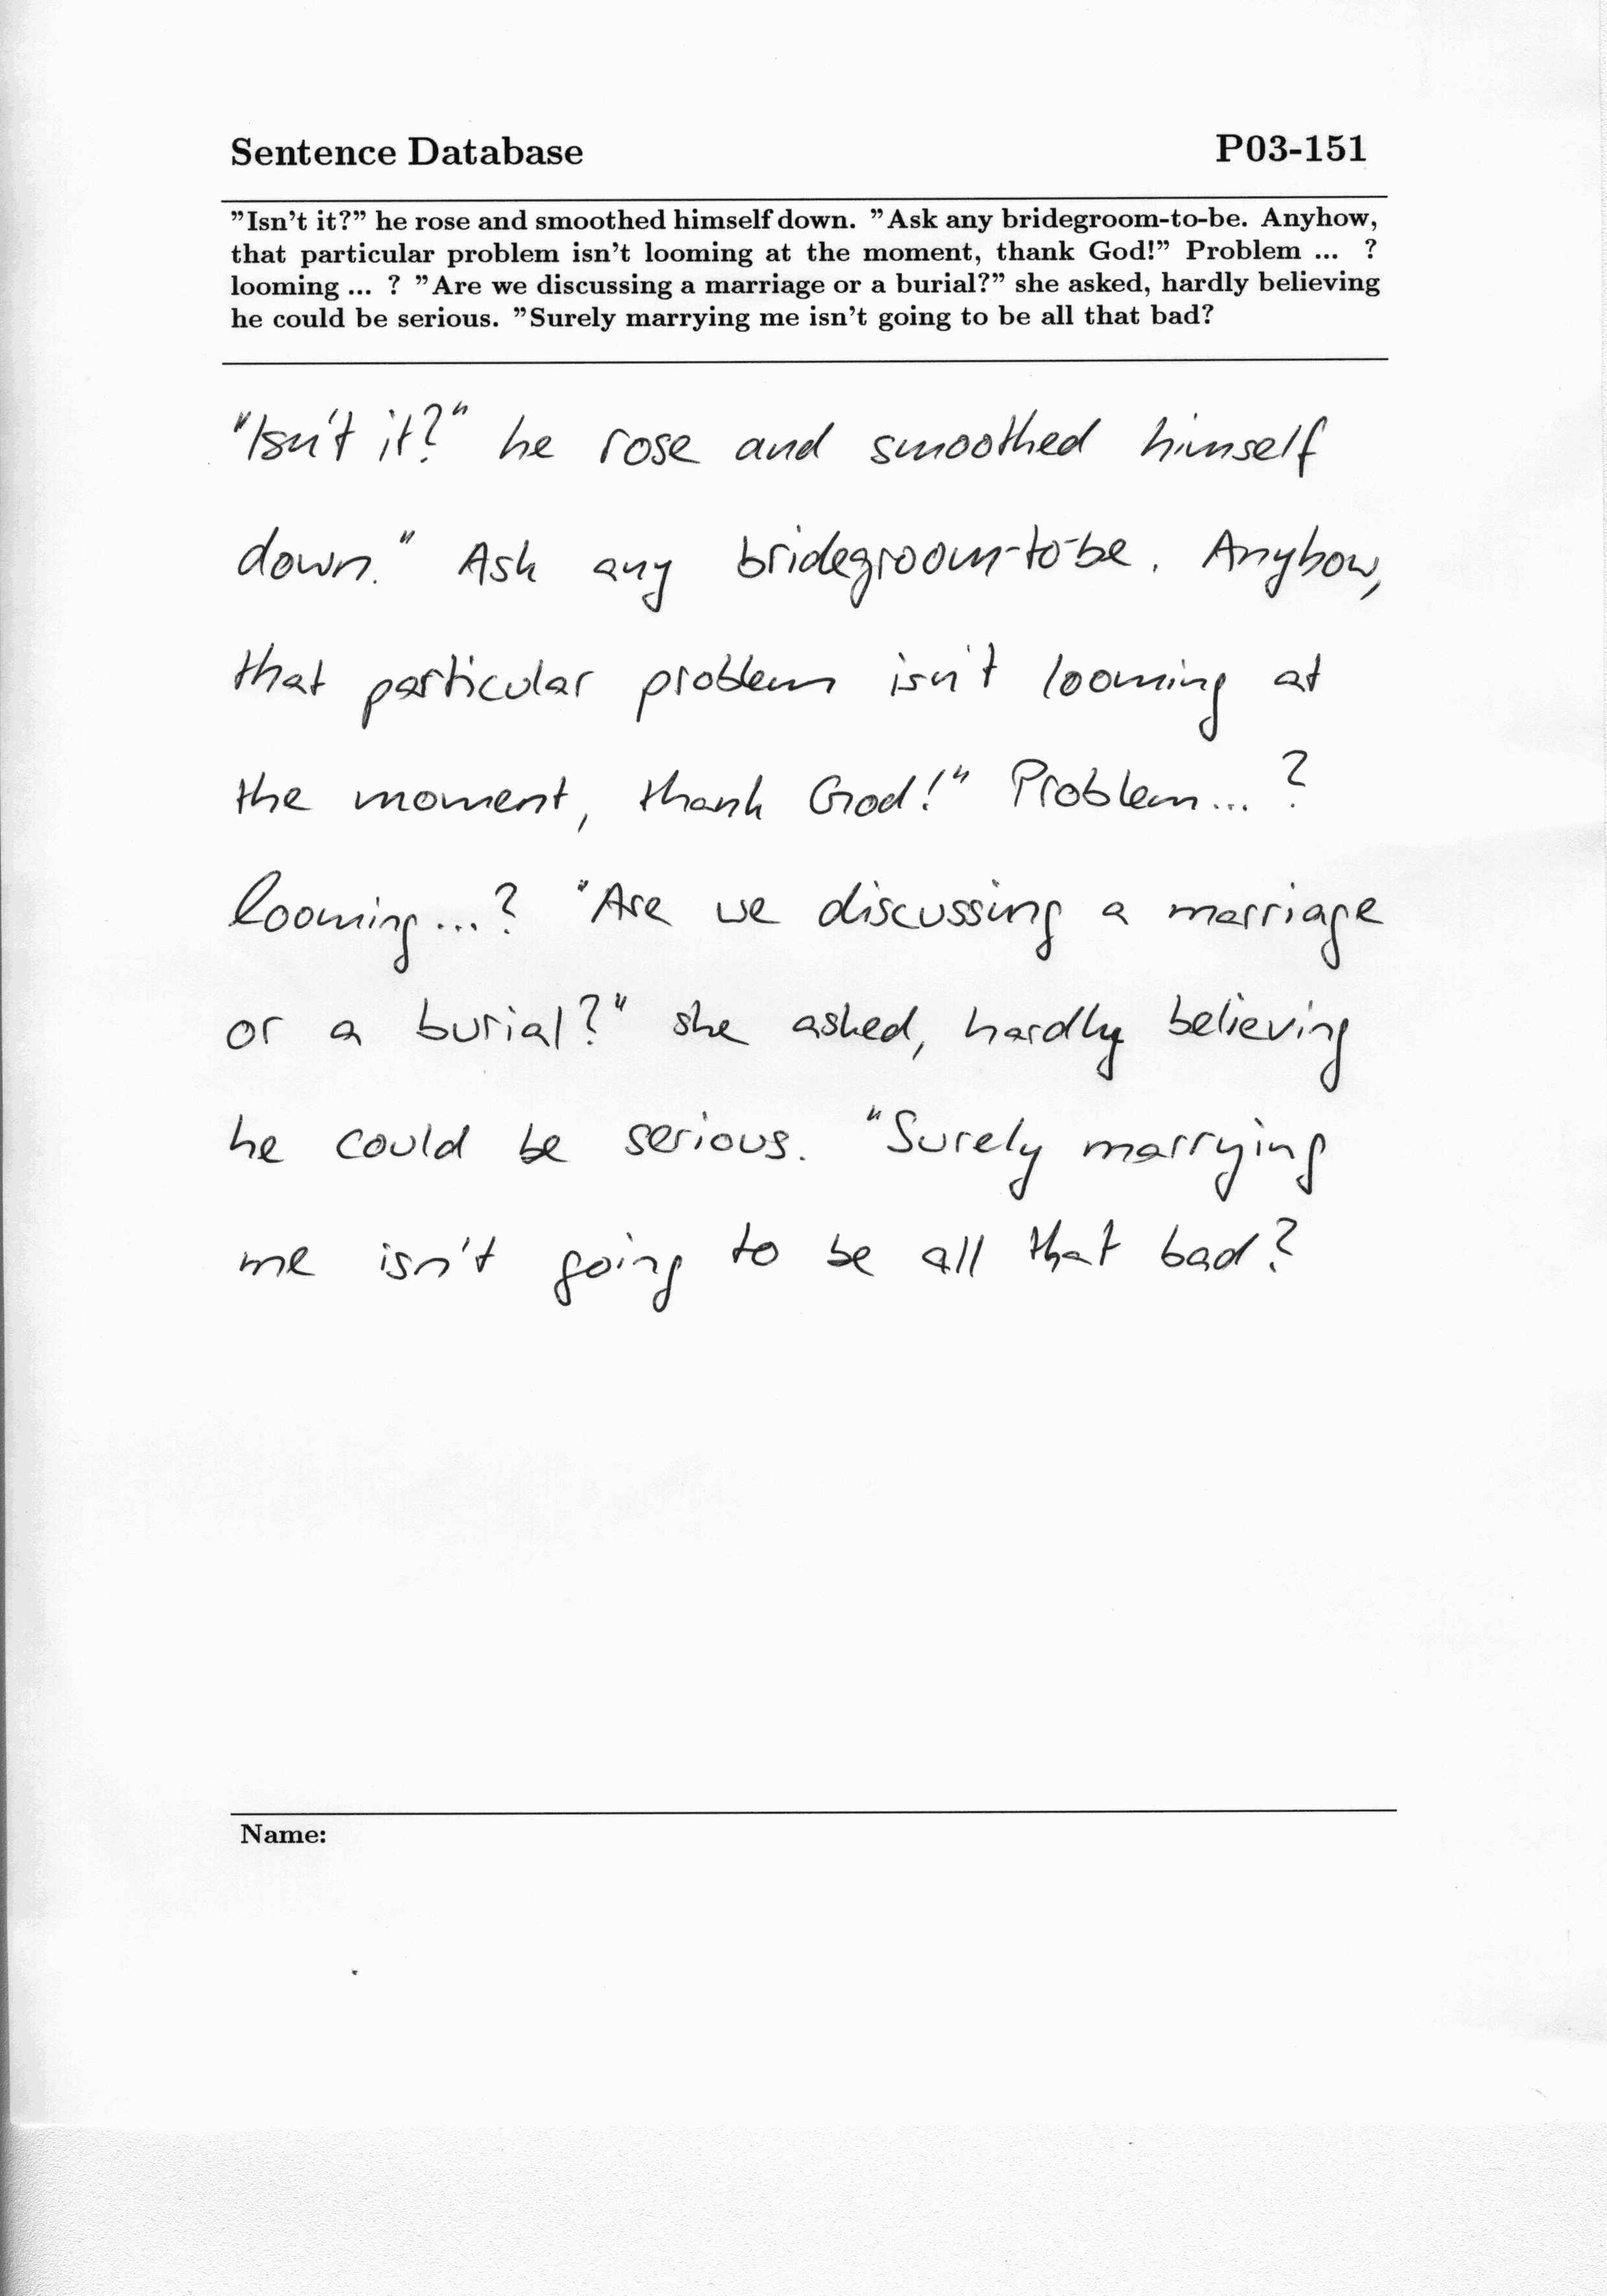 Sentence Database P03-151
"Isn't it?" he rose and smoothed himself down. "Ask any bridegroom-to-be. Anyhow,
that particular problem isn't looming at the moment, thank God!" Problem ... ?
looming ... ? "Are we discussing a marriage or a burial?" she asked, hardly believing
he could be serious. "Surely marrying me isn't going to be all that bad?
"Isn't it?" he rose and smoothed himself
down." Ask any bridegroom-to-be. Anyhow,
that particular problem isn't looming at
the moment, thank God!" Problem... ?
looming...? "Are we discussing a marriage
or a burial?" she asked, hardly believing
he could be serious. "Surely marrying
me isn't going to be all that bad?
Name: